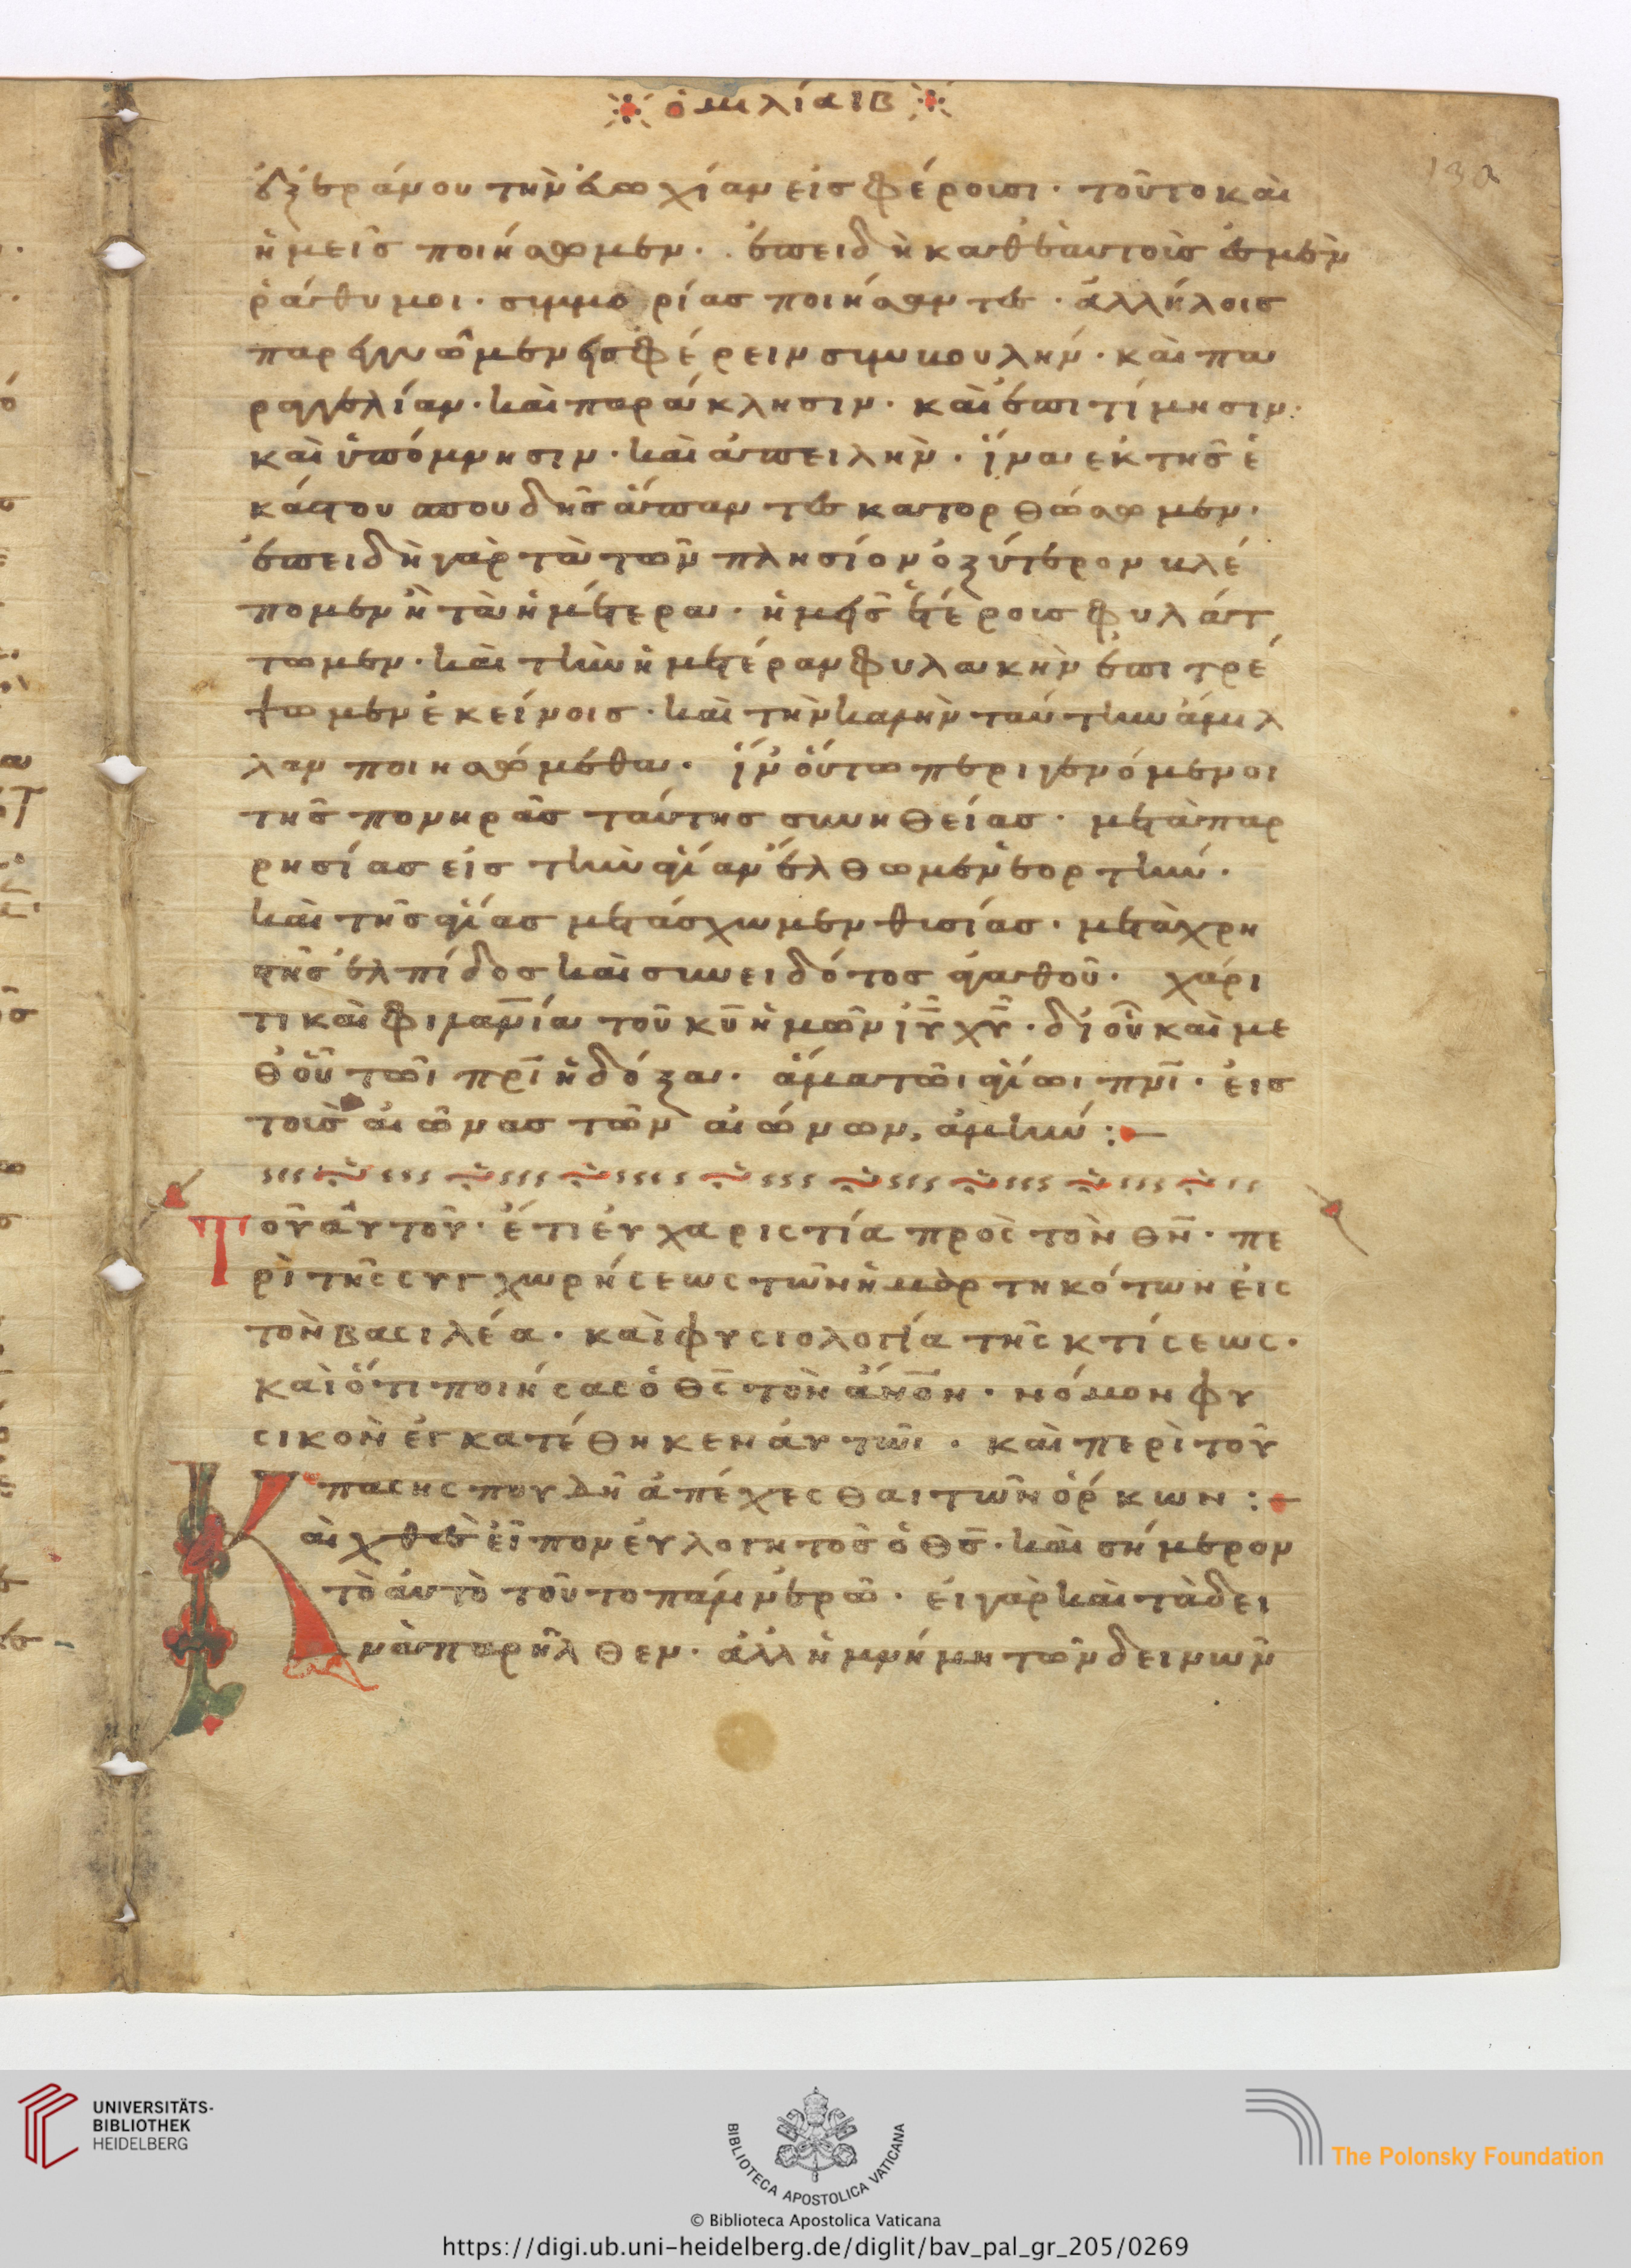 ὁμιλία ιβ
130
ἐξ ἐράνου τὴν εὐωχίαν εἰσφέρουσι· τοῦτο καὶ
ἡμεῖς ποιήσωμεν· ἐπειδὴ καθ' ἑαυτοὺς ἐσμὲν
ῥάθυμοι· συμμορίας ποιήσαντες· ἀλλήλοις
παρεγγυῶμεν εἰσφέρειν συμβουλήν· καὶ πα
ραγγελίαν· καὶ παράκλησιν· καὶ ἐπιτίμησιν·
καὶ ὑπόμνησιν· καὶ ἀπειλὴν· ἵνα ἐκ τῆς ἑ
κάστου σπουδῆς ἅπαντες κατορθώσωμεν·
ἐπειδὴ γὰρ τὰ τῶν πλησίον ὀξύτερον βλέ
πομεν ἢ τὰ ἡμέτερα· ἡμεῖς ἑτέρους φυλάτ
τωμεν· καὶ τὴν ἡμετέραν φυλακὴν ἐπιτρέ
ψωμεν ἐκείνοις· καὶ τὴν καλὴν ταύτην ἅμιλ
λαν ποιησώμεθα· ἵν' οὕτω περιγενόμενοι
τῆς πονηρᾶς ταύτης συνηθείας· μετὰ παρ
ρησίας εἰς τὴν ἁγίαν ἔλθωμεν ἑορτήν·
καὶ τῆς ἁγίας μετάσχωμεν θυσίας· μετὰ χρη
στῆς ἐλπίδος καὶ συνειδότος ἀγαθοῦ· χάρι
τι καὶ φιλανίᾳ τοῦ κυ ἡμῶν ιυ χυ· δι' οὗ καὶ με
θ' οὗ τῶι πρι ἡ δόξα· ἅμα τῶι ἁγίωι πνι· εἰς
τοὺς αἰῶνας τῶν αἰώνων, ἀμήν:
Τοῦ αὐτοῦ· ἔτι εὐχαριστία πρὸς τὸν θν· πε
ρὶ τῆς συγχωρήσεως τῶν ἡμαρτηκότων εἰς
τὸν βασιλέα· καὶ φυσιολογία τῆς κτίσεως·
καὶ ὅτι ποιήσας ὁ θς τὸν ἄνον· νόμον φυ
σικὸν ἐγκατέθηκεν αὐτῶι· καὶ περὶ τοῦ
πάσης πουδῆ ἀπέχεσθαι τῶν ὅρκων:
Καὶ χθὲς εἶπον εὐλογητὸς ὁ θς· καὶ σήμερον
τὸ αὐτὸ τοῦτο πάλιν ἐρῶ· εἰ γὰρ καὶ τὰ δει
νὰ παρῆλθεν· ἀλλ' ἡ μνήμη τῶν δεινῶν
UNIVERSITÄTS-
BIBLIOTHEK
HEIDELBERG
BIBLIOTECA APOSTOLICA VATICANA
The Polonsky Foundation
© Biblioteca Apostolica Vaticana
https://digi.ub.uni-heidelberg.de/diglit/bav_pal_gr_205/0269